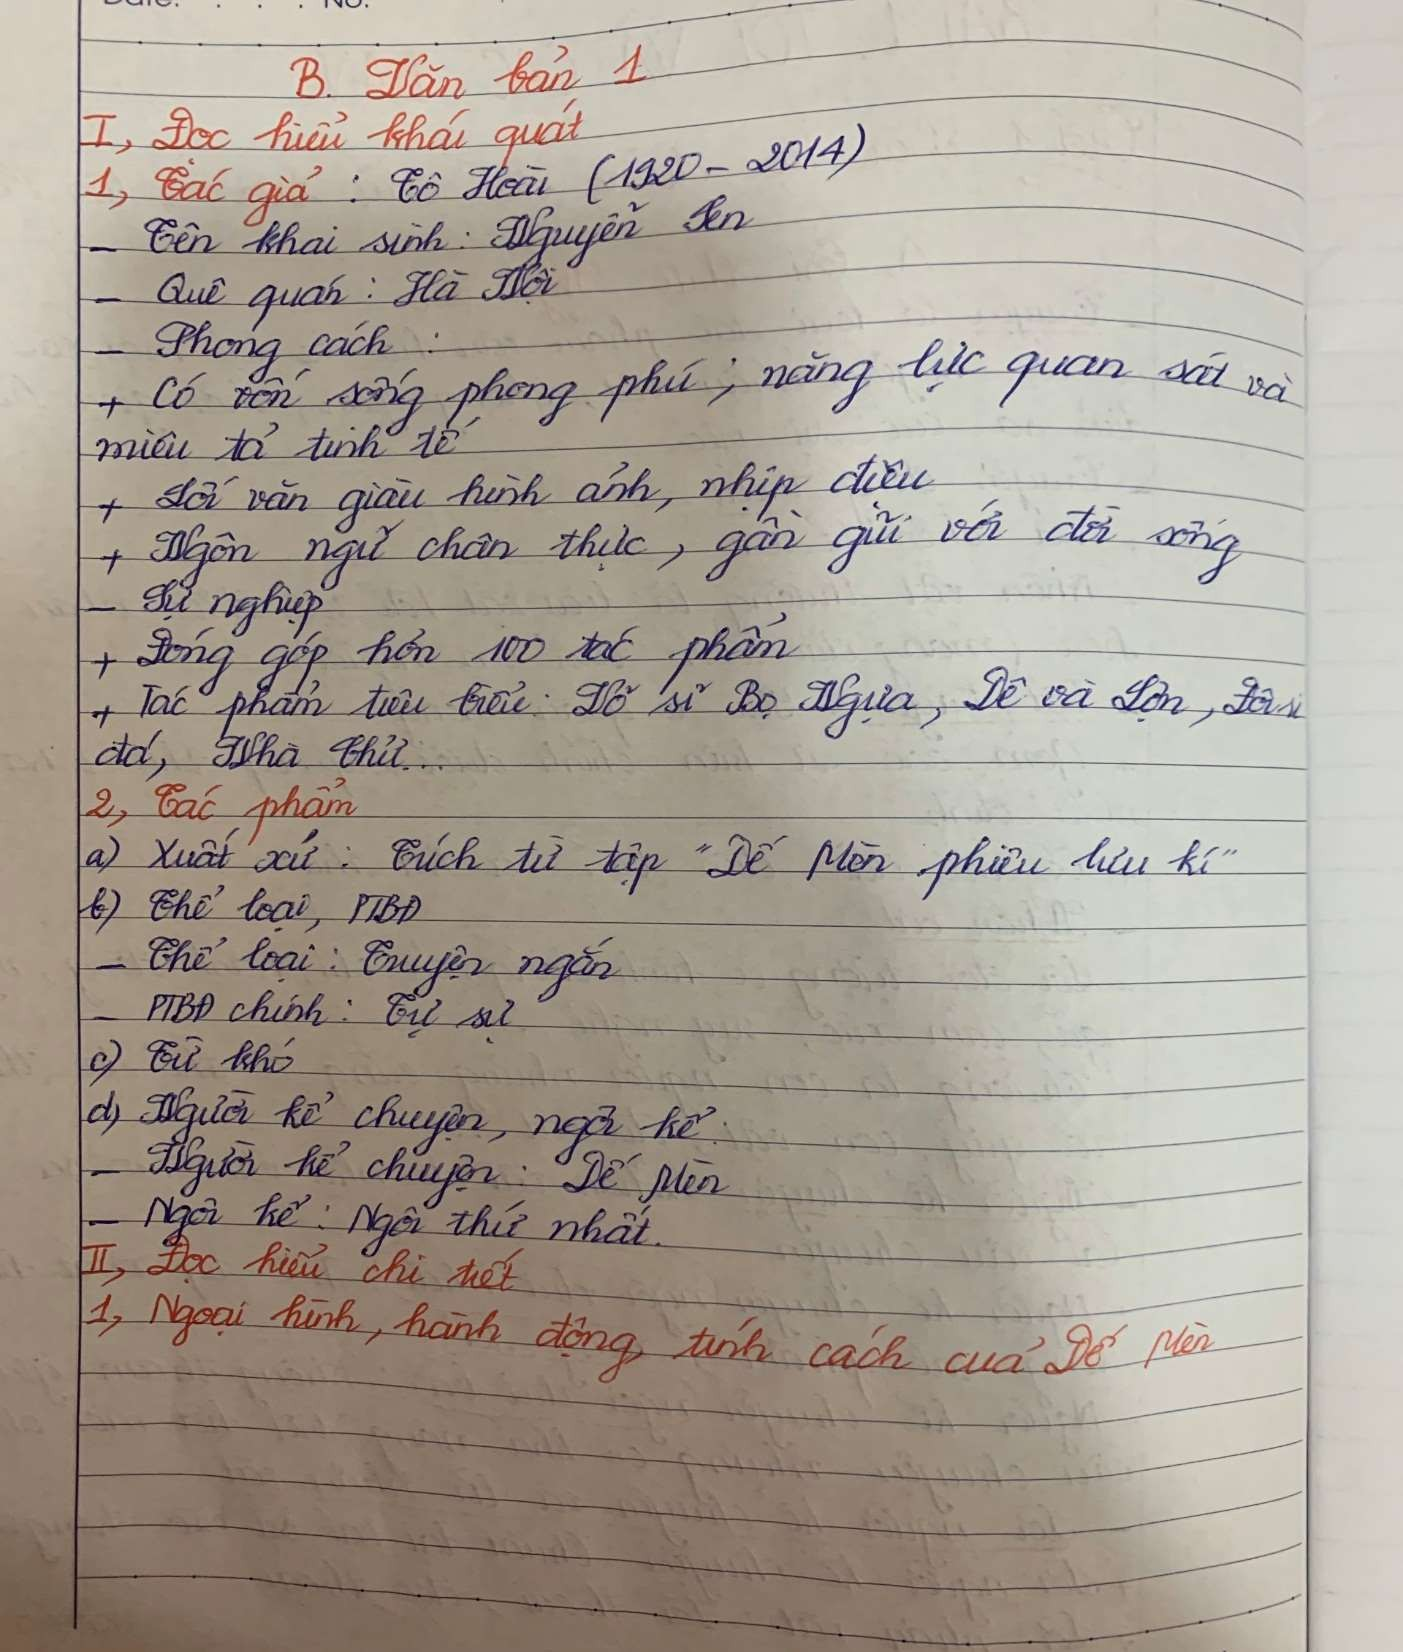 Date: . . . No.
B. Văn bản 1
I, Đọc hiểu khái quát
1, Tác giả : Tô Hoài (1920 - 2014)
- Tên khai sinh : Nguyễn Sen
- Quê quán : Hà Nội
- Phong cách :
+ Có vốn sống phong phú ; năng lực quan sát và
miêu tả tinh tế
+ Lối văn giàu hình ảnh, nhịp điệu
+ Ngôn ngữ chân thực, gần gũi với đời sống
- Sự nghiệp
+ Đóng góp hơn 100 tác phẩm
+ Tác phẩm tiêu biểu : Võ sĩ Bọ Ngựa, Dê và Lợn, Đôi ri
đá, Nhà Chử...
2, Tác phẩm
a) Xuất xứ : Trích từ tập "Dế Mèn phiêu lưu kí"
b) Thể loại, PTBĐ
- Thể loại : Truyện ngắn
- PTBĐ chính : Tự sự
c) Từ khó
d) Người kể chuyện, ngôi kể :
- Người kể chuyện : Dế Mèn
- Ngôi kể : Ngôi thứ nhất.
II, Đọc hiểu chi tiết
1, Ngoại hình, hành động, tính cách của Dế Mèn